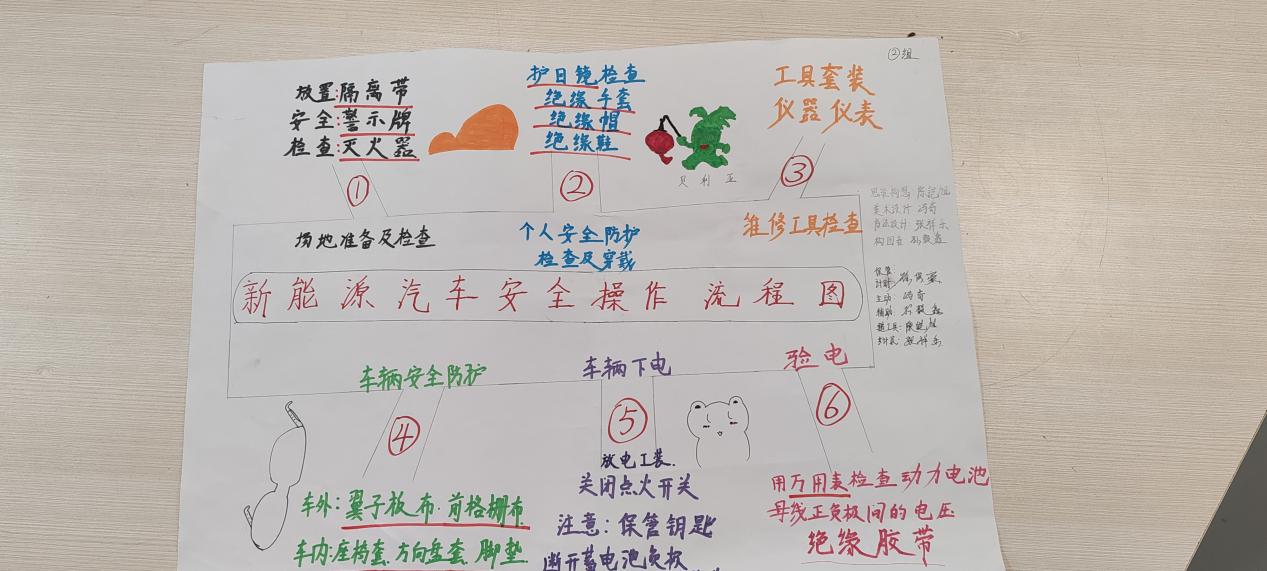 ②组
放置:隔离带
安全:警示牌
检查:灭火器
①
场地准备及检查
护目镜检查
绝缘手套
绝缘帽
绝缘鞋
②
个人安全防护
检查及穿戴
贝利亚
工具套装
仪器仪表
③
维修工具检查
新能源汽车安全操作流程图
车辆安全防护
④
车外:翼子板布.前格栅布
车内:座椅套.方向盘套.脚垫
车辆下电
⑤
放电工装.
关闭点火开关
注意:保管钥匙
断开蓄电池负极
验电
⑥
用万用表检查动力电池
母线正负极间的电压
绝缘胶带
美术设计